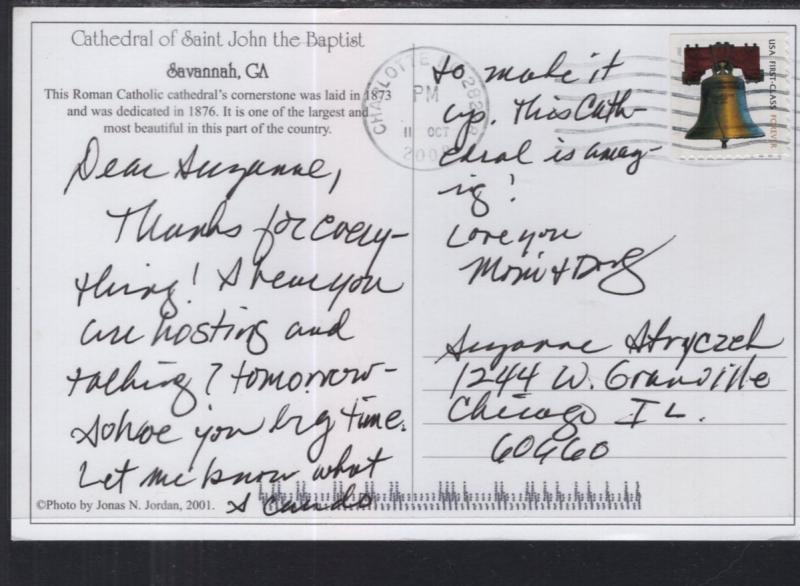 Cathedral of Saint John the Baptist
Savannah, GA
This Roman Catholic cathedral's cornerstone was laid in 1873
and was dedicated in 1876. It is one of the largest and
most beautiful in this part of the country.
Dear Suzanne,
Thanks for every-
thing! I hear you
are hosting and
talking? tomorrow-
I owe you big time.
Let me know what
I can do
©Photo by Jonas N. Jordan, 2001.
to make it
up. This Cath-
edral is amaz-
ing!
Love you
Mom + Doug
CHARLOTTE 282
PM
11 OCT
2008
USA FIRST-CLASS FOREVER
Suzanne Stryczek
1244 W. Granville
Chicago IL.
60660